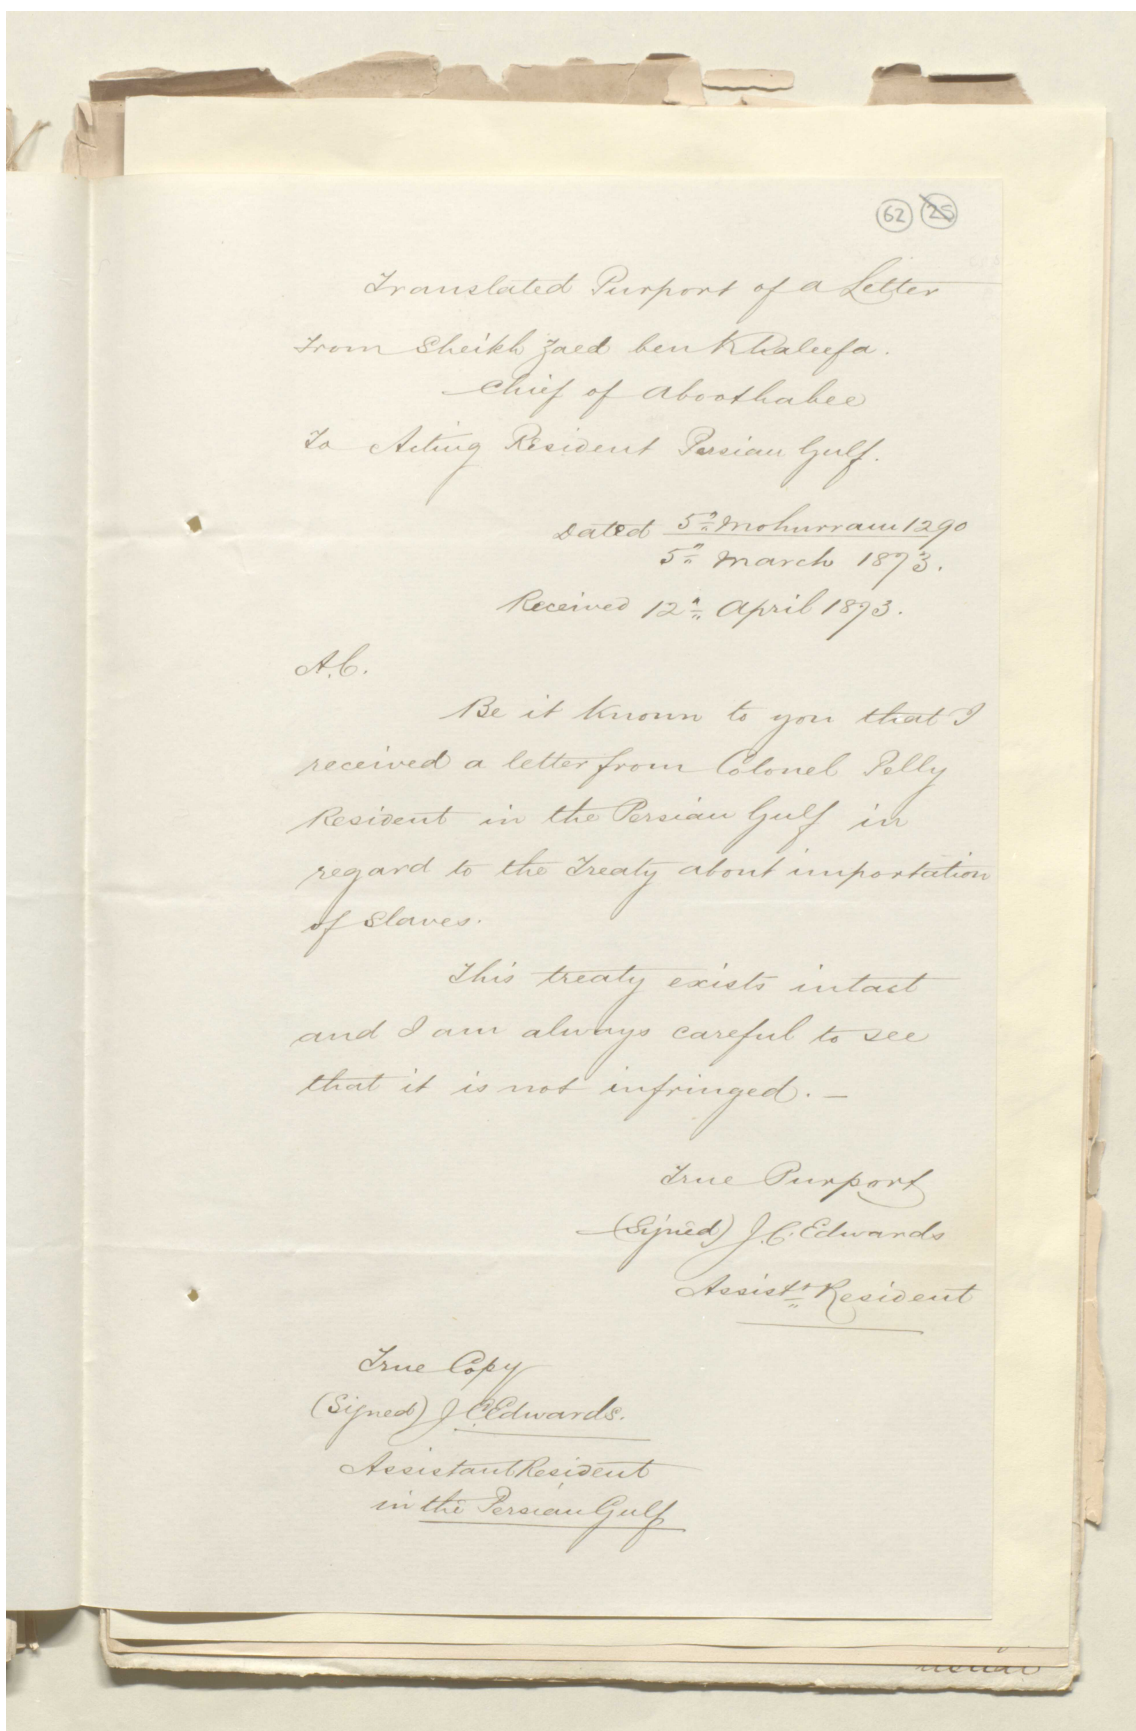 62 25
Translated Purport of a Letter
From Sheikh Zaed ben Khaleefa.
Chief of Aboothabee
To Acting Resident Persian Gulf.
Dated 5th Mohurram 1290
5th March 1873.
Received 12th April 1873.
A.C.
Be it known to you that I
received a letter from Colonel Pelly
Resident in the Persian Gulf in
regard to the Treaty about importation
of Slaves.
This treaty exists intact
and I am always careful to see
that it is not infringed. —
True Purport
(Signed) J.C. Edwards
Assistt Resident
True Copy
(Signed) J C Edwards.
Assistant Resident
in the Persian Gulf